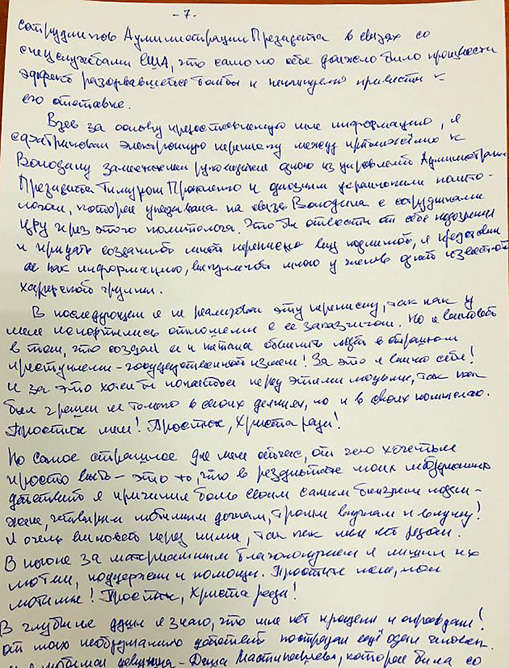 - 7 -
сотрудников Администрации Президента в связях со
спецслужбами США, что само по себе должно было произвести
эффект разорвавшейся бомбы и неминуемо привести к
его отставке.
Взяв за основу предоставленную мне информацию, я
сфабриковал электронную переписку между приближённым к
Володину заместителем руководителя одного из управлений Администрации
Президента Тимуром Прокопенко и одиозным украинским полито-
логом, которая указывала на связь Володина с сотрудниками
ЦРУ через этого политолога. Чтобы отвести от себя подозрения
и придать созданной мной переписке вид подлинной, я представил
её как информацию, выкупленную мною у членов одной известной
хакерской группы.
В последующем я не реализовал эту переписку, так как у
меня испортились отношения с её заказчиком. Но я виноват
в том, что создал её и пытался обвинить людей в страшном
преступлении - государственной измене! За это я виню себя!
И за это хотел бы покаяться перед этими людьми, так как
был грешен не только в своих деяниях, но и в своих помыслах.
Простите меня! Простите, Христа ради!
Но самое страшное для меня сейчас, от чего хочется
просто выть - это то, что в результате моих необдуманных
действий я причинил боль своим самым близким людям -
жене, четверым любимым дочкам, троим внучкам и внуку!
Я очень виноват перед ними, так как меня нет рядом.
В погоне за материальным благополучием я лишил их
любви, поддержки и помощи. Простите меня, мои
любимые! Простите, Христа ради!
В глубине души я знаю, что мне нет прощения и оправдания!
От моих необдуманных действий пострадал ещё один человек.
девушка - Даша которая была со